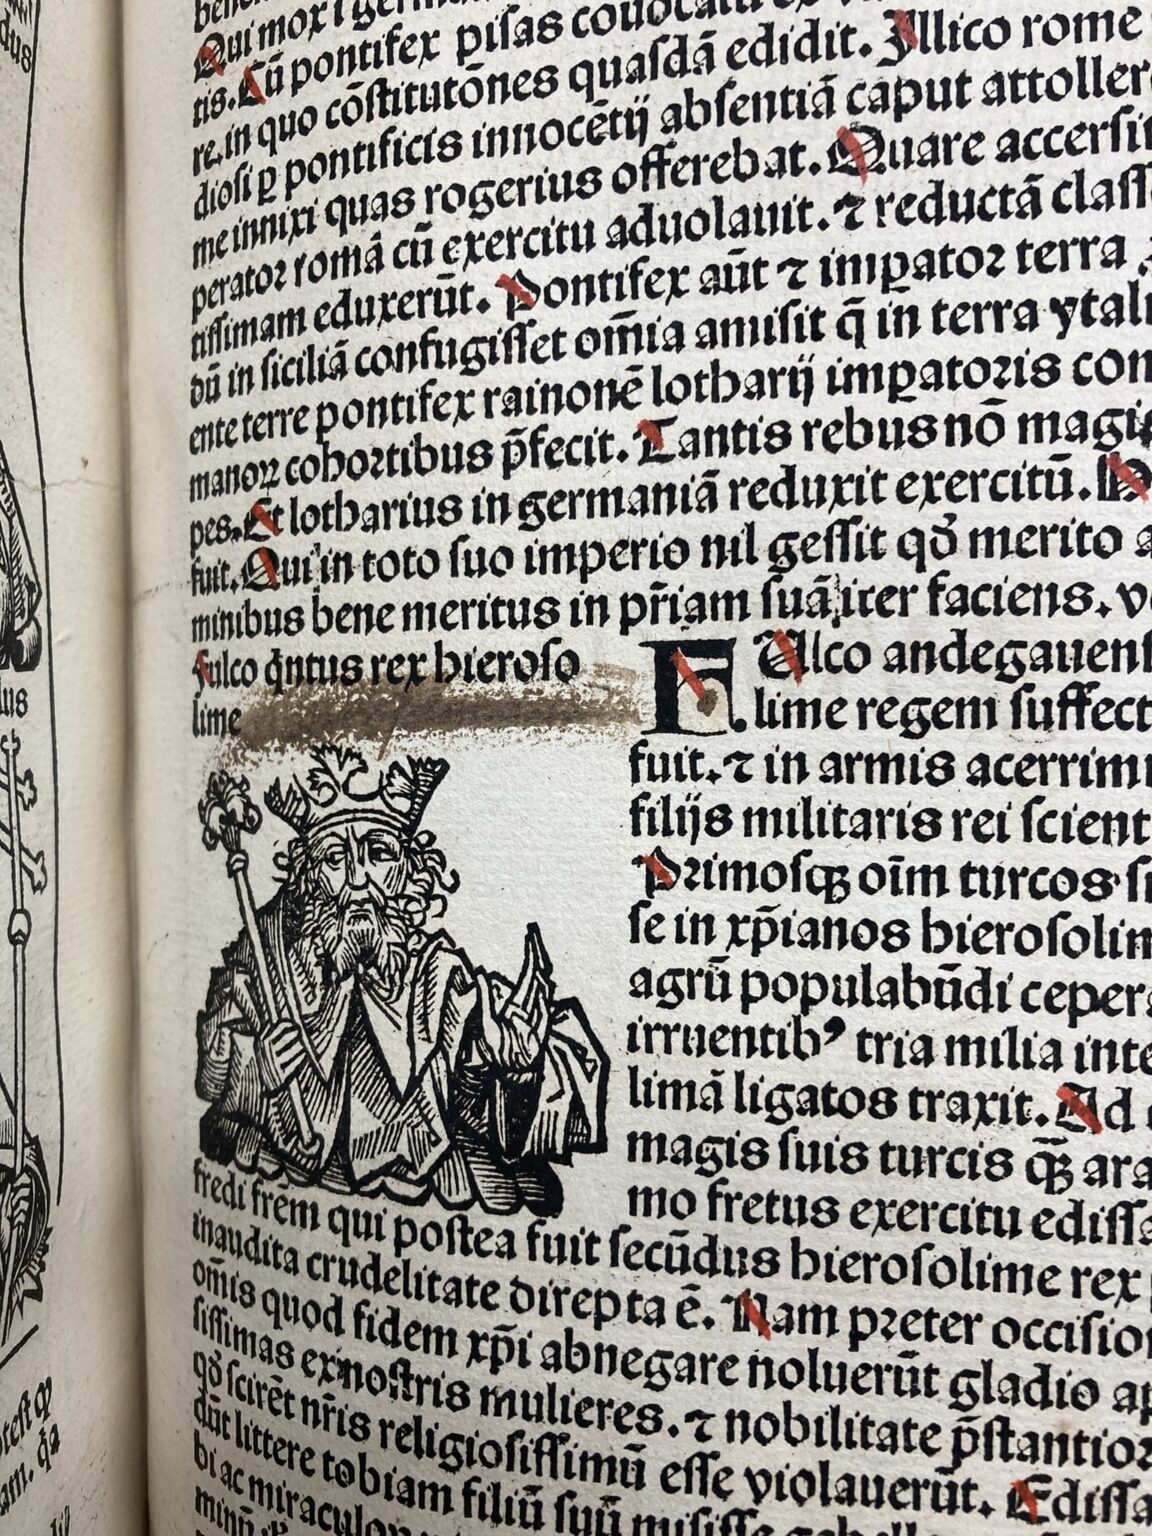 Qui mox i germa
tis. Cū pontifex pisas couocat
re. in quo cōstitutōnes quasdā edidit. Illico rome
diosi ꝑ pontificis innocētij absentiā caput attoller
me innixi quas rogerius offerebat. Quare accersi
perator romā cū exercitu aduolauit. ⁊ reductā class
tissimam eduxerūt. Pontifex aūt ⁊ imꝑator terra
dū in siciliā confugisset om̄ia amisit q̄ in terra ytal
ente terre pontifex rainonē lotharij imꝑatoris con
manoꝝ cohortibus p̄fecit. Tantis rebus nō magis
pes. Et lotharius in germaniā reduxit exercitū.
fuit. Qui in toto suo imperio nil gessit qđ merito
minibus bene meritus in pr̄iam suā iter faciens.
Fulco qͥntus rex hieroso
lime
F. Ulco andegauens
lime regem suffect
fuit. ⁊ in armis acerrim
filijs militaris rei scient
Primosqꝫ oīm turcos
se in xp̄ianos hierosolim
agrū populabūdi ceper
irruentibꝰ tria milia inte
limā ligatos traxit. Ad
magis suis turcis qꝫ̄ ara
mo fretus exercitu ediss
fredi frēm qui postea fuit secūdus hierosolime rex
inaudita crudelitate direpta ē. Nam preter occisio
om̄is quod fidem xp̄i abnegare noluerūt gladio
sissimas ex nostris mulieres. ⁊ nobilitate p̄stantior
qđ scirēt nr̄is religiosissimū esse violauerūt. Edissa
dūt littere tobiam filiū suū misisse
bi ac miraculo